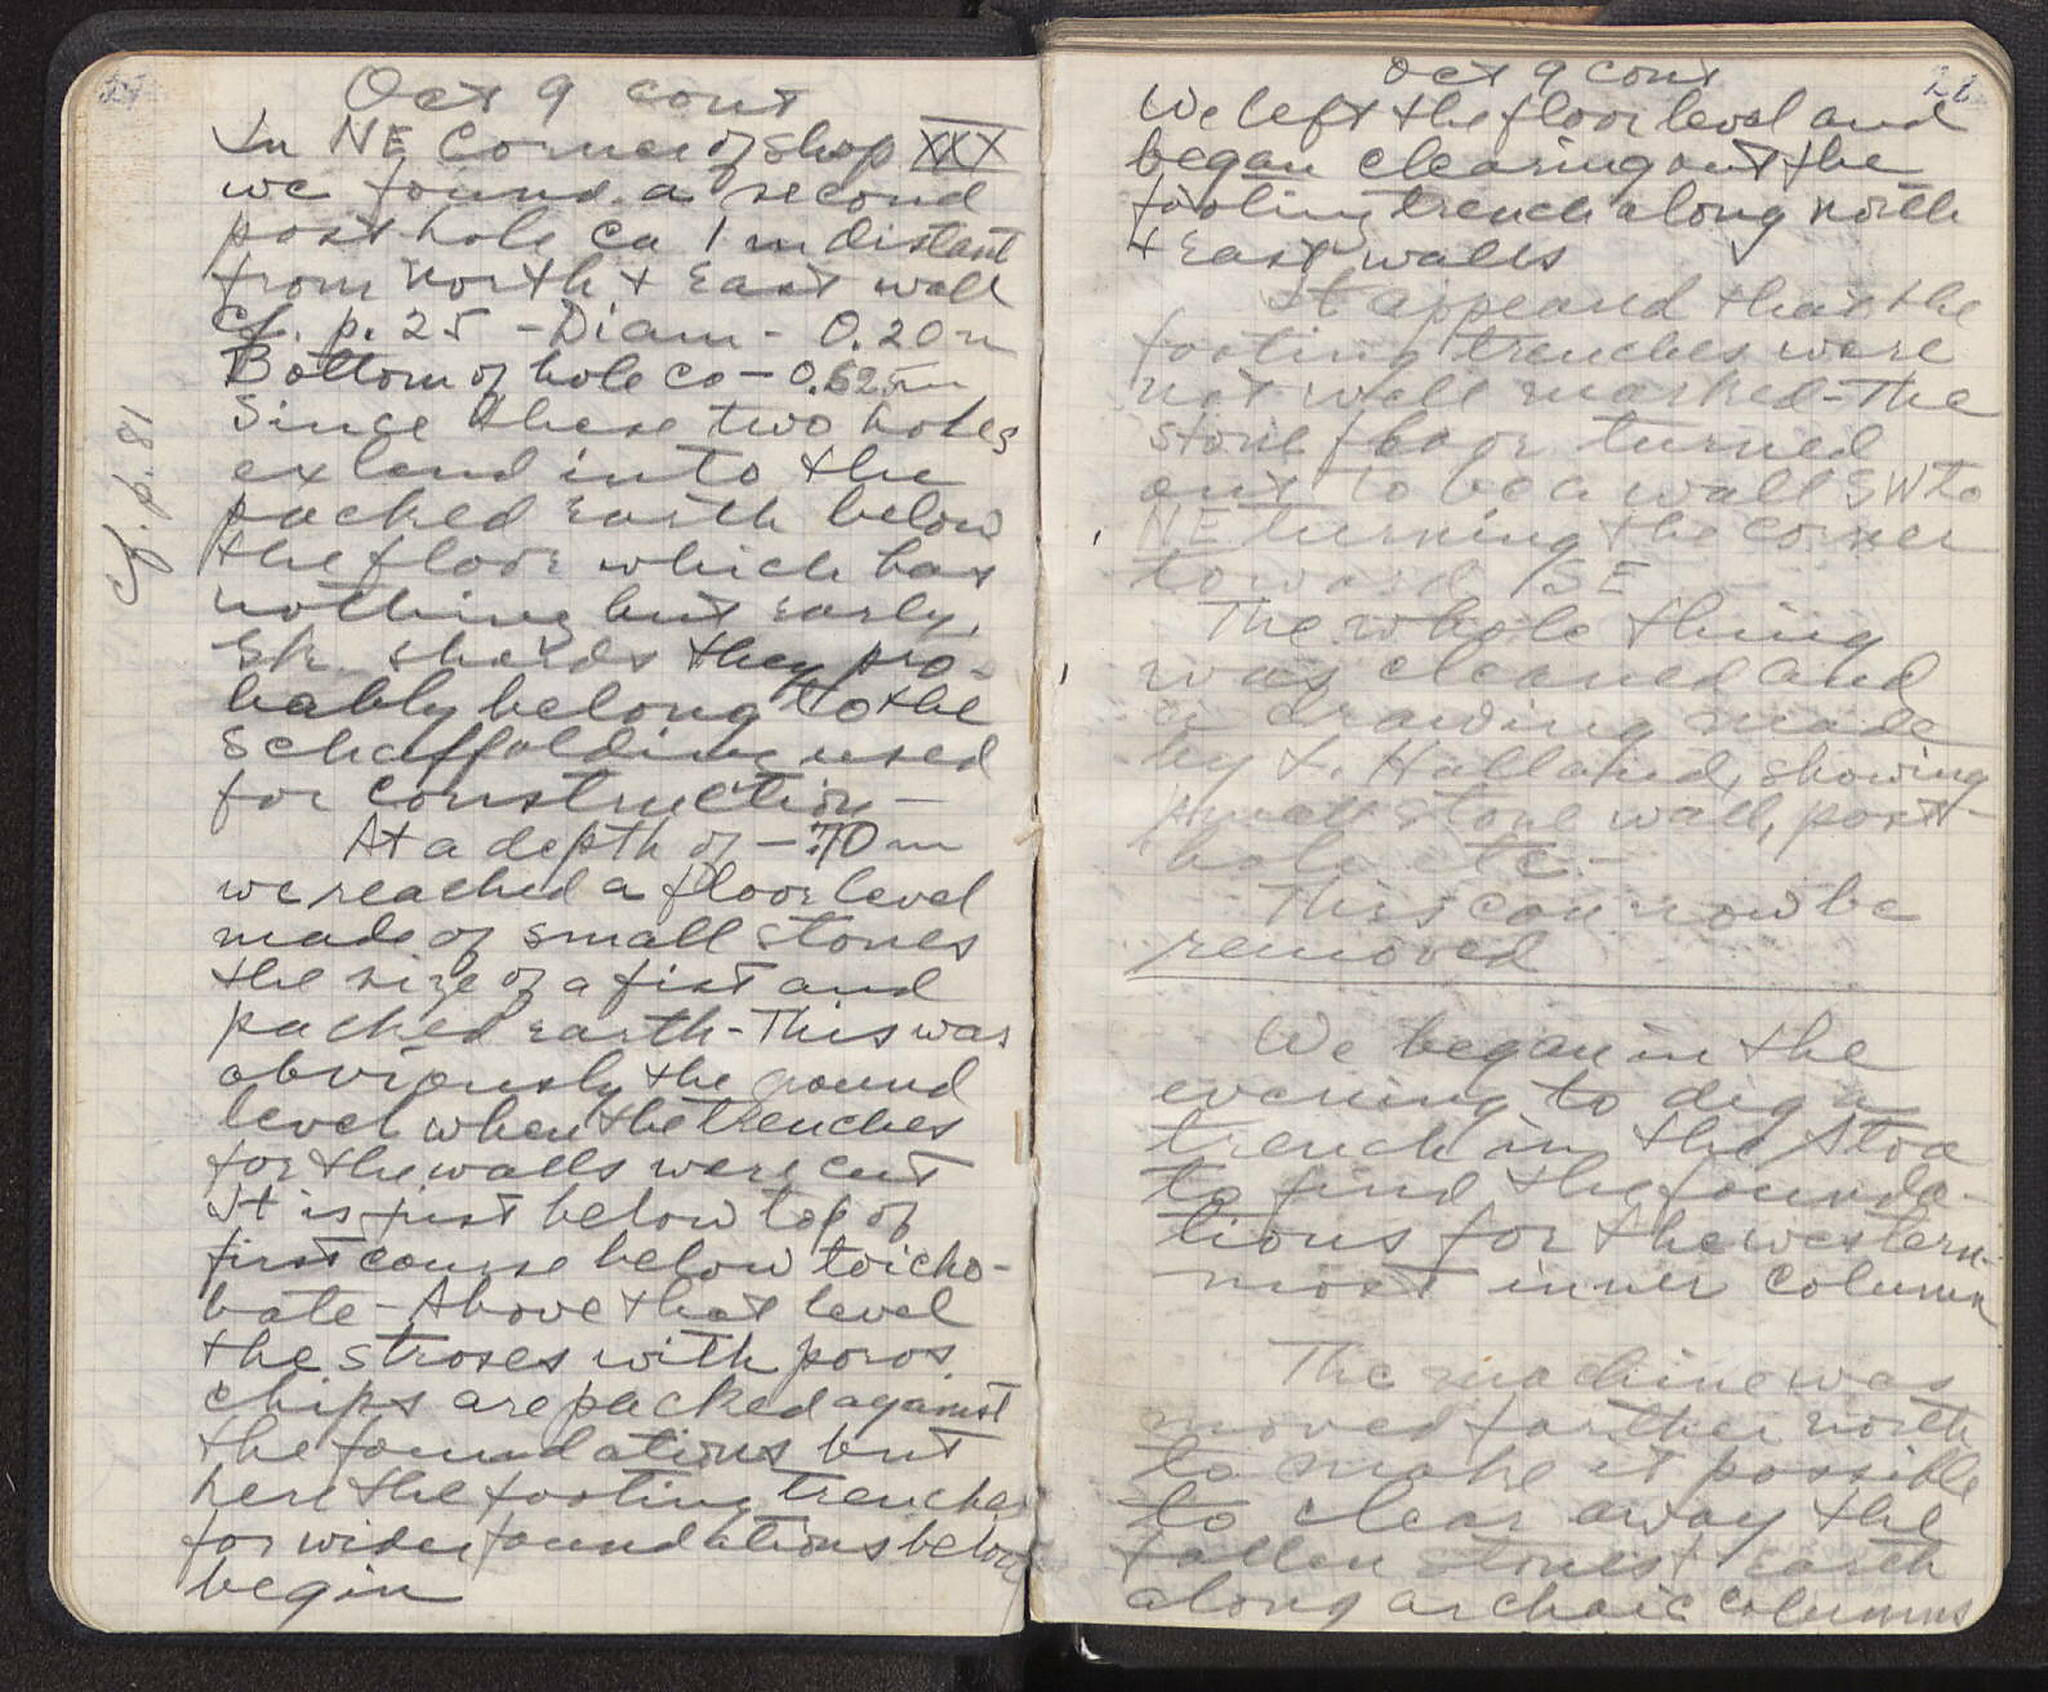 Oct 9 cont
In NE Corner of Shop XXX
we found a second
post hole ca 1 m distant
from North + East wall
Cf. p. 25 - Diam - 0.20 m
Bottom of hole ca - 0.625m
Since these two holes
extend into the
packed earth below
the floor which has
nothing but early
Gk. sherds they pro-
bably belong to the
schaffolding used
for construction -
At a depth of - .70 m
we reached a floor level
made of small stones
the size of a fist and
packed earth - This was
obviously the ground
level when the trenches
for the walls were cut
It is just below top of
first course below toicho-
bate - Above that level
the stroses with poros
chips are packed against
the foundations but
here the footing trenches
for wider foundations below
begin
cf. p. 81
Oct 9 cont
We left the floor level and
began clearing out the
footing trench along north
+ East walls
It appeared that the
footing trenches were
not well marked - The
stone floor turned
out to be a wall SW to
NE turning the corner
toward SE
The whole thing
was cleaned and
a drawing made
by L. Holland, showing
small stone wall, post-
hole etc -
This can now be
removed
We began in the
evening to dig a
trench in the Stoa
to find the founda-
tions for the western-
most inner column
The machine was
moved farther north
to make it possible
to clear away the
fallen stones + earth
along archaic columns